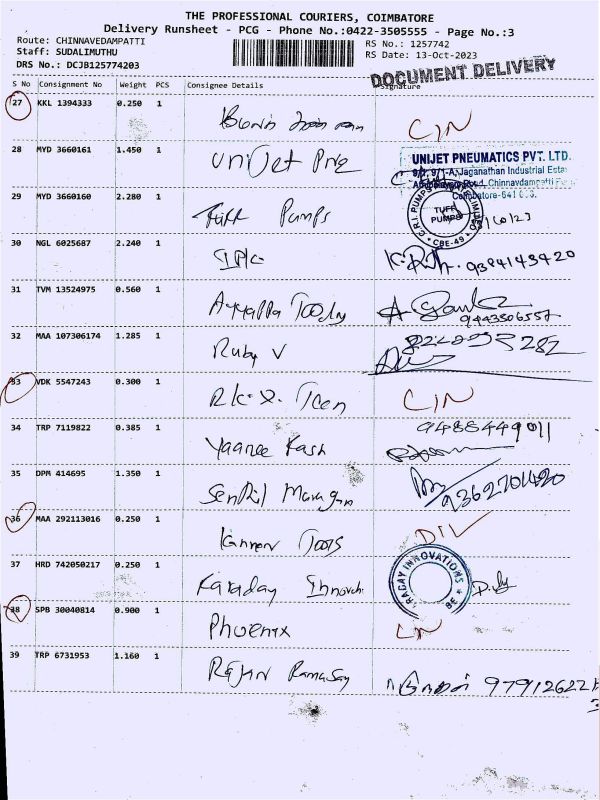 THE PROFESSIONAL COURIERS, COIMBATORE
Delivery Runsheet - PCG - Phone No.:0422-3505555 - Page No.:3
Route: CHINNAVEDAMPATTI
Staff: SUDALIMUTHU
DRS No.: DCJB125774203
RS No.: 1257742
RS Date: 13-Oct-2023
DOCUMENT DELIVERY
S No Consignment No Weight PCS Consignee Details Signature
27 KKL 1394333 0.250 1 CIN
28 MYD 3660161 1.450 1 Unijet Pne
UNIJET PNEUMATICS PVT. LTD.
9/2, 9/1-A, Jaganathan Industrial Estate
Road, Chinnavdampatti
Coimbatore-641
29 MYD 3660160 2.280 1 Tuff Pumps
C.R.I. PUMPS
TUFF PUMPS
CBE-49
30 NGL 6025687 2.240 1 9384143420
31 TVM 13524975 0.560 1 Ayyappa
9443506557
32 MAA 107306174 1.285 1 Ruby V
282
33 VDK 5547243 0.300 1 CIN
34 TRP 7119822 0.385 1 Yaanee Kash 9488449011
35 DPM 414695 1.350 1 Senthil Murugan 9362701420
36 MAA 292113016 0.250 1 Kannan Tools DIL
37 HRD 742050217 0.250 1 Karaday Innovch
RADAY INNOVATIONS
BE
38 SPB 30040814 0.900 1 Phoenix CIN
39 TRP 6731953 1.160 1 Rajan Ramasay 97912622